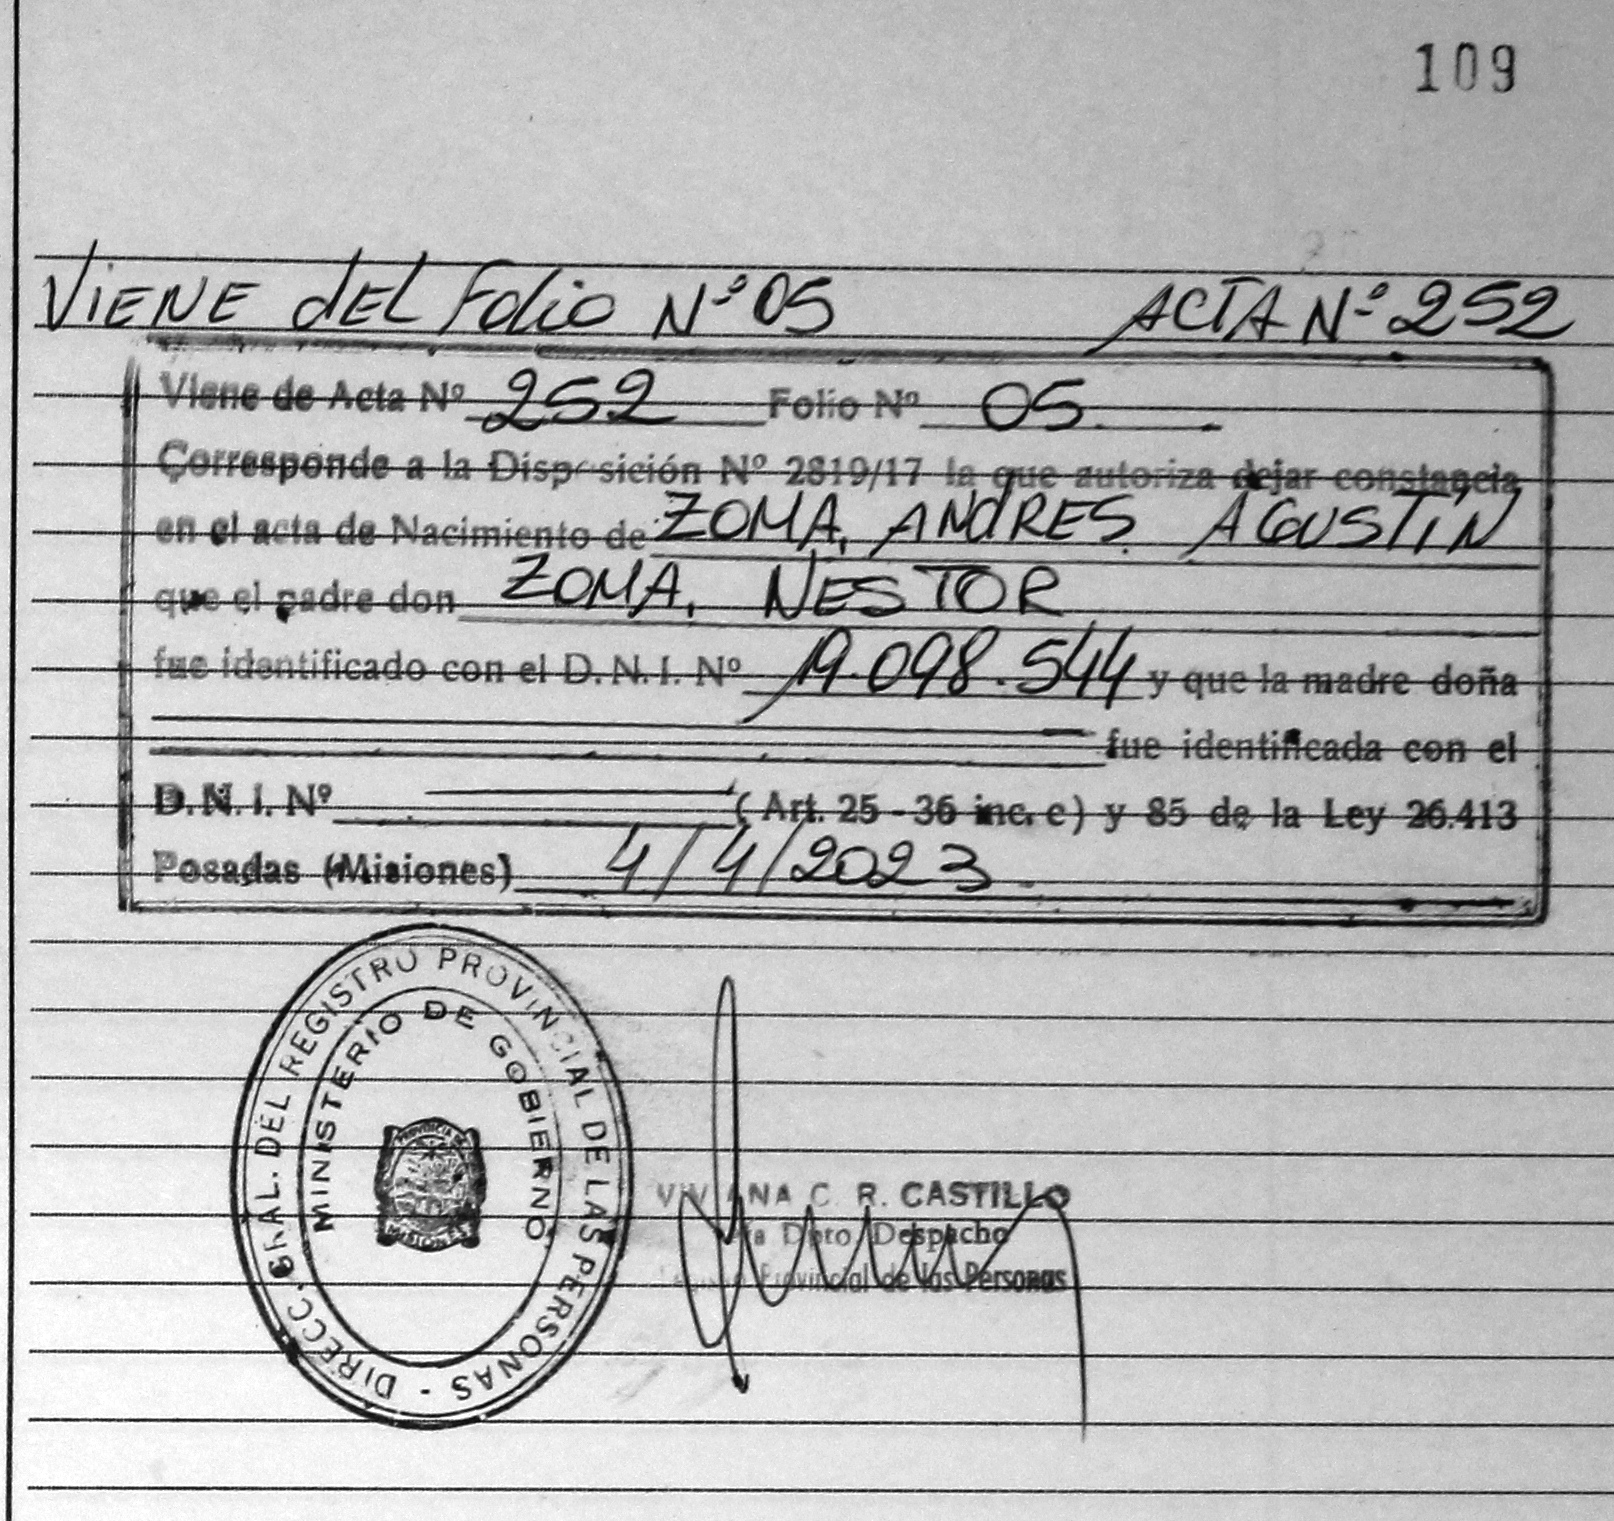 109
VIENE dEL Folio Nº 05 ACTA Nº 252
Viene de Acta Nº 252 Folio Nº 05.
Corresponde a la Disposición Nº 2819/17 la que autoriza dejar constancia
en el acta de Nacimiento de ZOMA, ANDRES AGUSTÍN
que el padre don ZOMA, NESTOR
fue identificado con el D.N.I. Nº 19.098.544 y que la madre doña
fue identificada con el
D.N.I. Nº (Art. 25 - 36 inc. c) y 85 de la Ley 26.413
Posadas (Misiones) 4/4/2023
DIRECC. GRAL. DEL REGISTRO PROVINCIAL DE LAS PERSONAS -
MINISTERIO DE GOBIERNO
PROVINCIA DE
MISIONES
VIVIANA C. R. CASTILLO
Dpto. Despacho
Provincial de las Personas